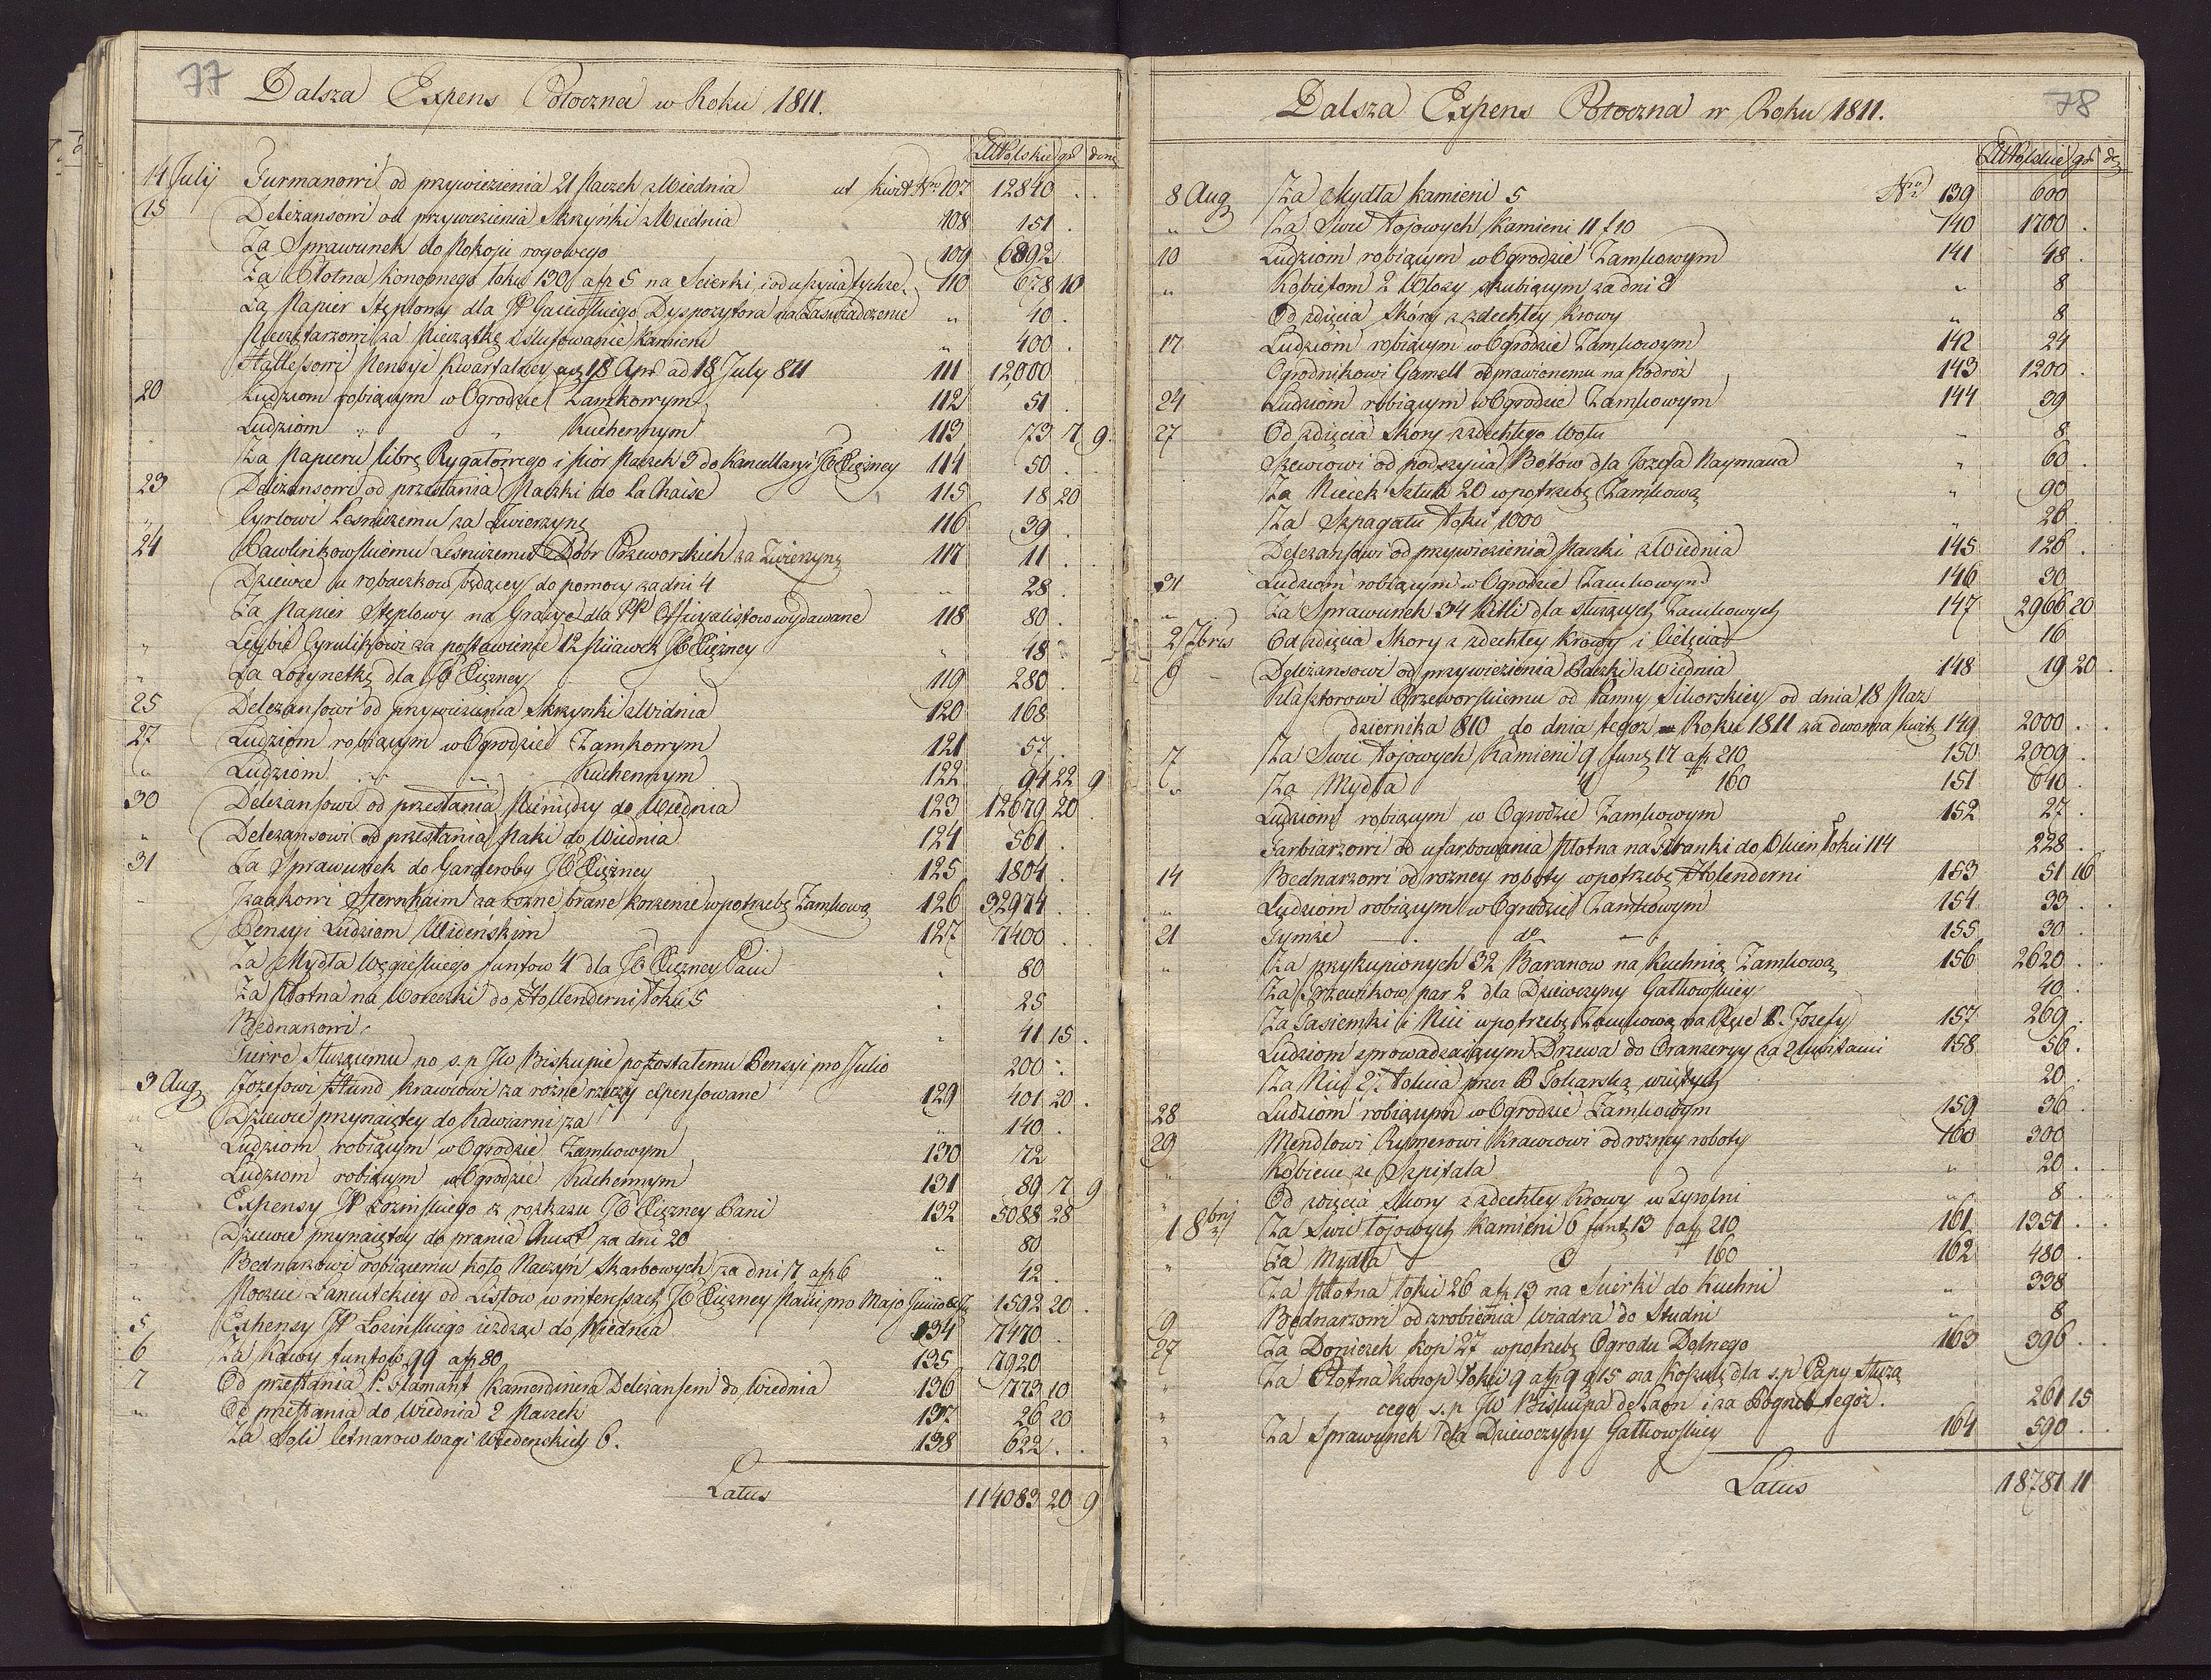 77
Dalsza Expens Potoczna w Roku 1811.
ZłPolskie gr den
14 July Furmanowi od przywiezienia 21 Paczek z Wiednia ut kwit Nro 107 12840 . .
15 Deleżansowi od przywiezienia Skrzynki z Wiednia 108 151 .
Za Sprawunek do Pokoju rogowego 109 6892
Za Płotna konopnego łokci 130 a fp 5 na Scierki, i od uszycia tychże 110 678 10
Za Papier Stęplowy dla JP Dyspozytora na Zaswiadczenie " 40 .
Pieczętarzowi za Pieczątkę i szlufowanie kamieni " 400 .
Pensyi kwartalney a 18 Apr ad 18 July 811 111 12000
20 Ludziom robiącym w Ogrodzie Zamkowym 112 51 .
Ludziom " " Kuchennym 113 73 7 9
Za Papieru librę Rygałowego i pior Paczek 3 do Kancellaryi JO Xiężney 114 50 .
23 Deleżansowi od przesłania Paczki do La Chaise 115 18 20
" Cyrlowi Lesniczemu za Zwierzynę 116 39 .
24 Pawlinkowskiemu Lesniczemu z Dobr Przeworskich za Zwierzynę 117 11 .
Dziewce u robaczkow będącey do pomocy za dni 4 " 28 .
Za Papier Stęplowy na Gracye dla PP Officyalistow wydawane 118 80 .
" Leybie Cyrulikowi za postawienie 12 Piiawek JO Xiężney " 48
" Za Lorynetkę dla JO Xiężney 119 280 .
25 Deleżansowi od przywiezienia Skrzynki z Widnia 120 168
27 Ludziom robiącym w Ogrodzie Zamkowym 121 57 .
" Ludziom " " Kuchennym 122 94 22 9
30 Deleżansowi od przesłania Pieniędzy do Wiednia 123 12679 20
" Deleżansowi od przesłania Paki do Wiednia 124 561 .
31 Za Sprawunek do Garderoby JO Xiężney 125 1804 .
Izaakowi Sternhaim za rożne brane korzenie w potrzebę Zamkową 126 32974 .
Pensyi Ludziom Widenskim 127 7400 . .
Za Mydła Węgieskiego funtow 4 dla JO Xiężney Pani . 80
Za Płotna na Woreczki do Hollenderni łokci 5 . 25
Bednarzowi . 41 15 .
Pierre Służącemu po s.p JW Biskupie pozostałemu Pensyi pro Julio 200 .
3 Aug Jozefowi Hund Krawcowi za rożne rzeczy expensowane 129 401 20 .
" Dziewce przynaiętey do Kawiarni za " 140 .
" Ludziom robiącym w Ogrodzie Zamkowym 130 72
" Ludziom robiącym w Ogrodzie Kuchennym 131 89 7 9
" Expensy JP Łozinskiego z rozkazu JO Xiężney Pani 132 5088 28
" Dziewce przynaiętey do prania Chust za dni 20 " 80
" Bednarzowi robiącemu koło Naczyń Skarbowych za dni 7 a fp 6 " 42 .
" Poczcie Łancutckiey od Listow w interessach JO Xiężney Pani pro Majo Junio et Ju 1592 20 .
5 Expensy JP Łozinskiego ieżdząc do Wiednia 134 7470 .
6 Za Kawy funtow 99 a fp 80 135 7920
7 Od przesłania P. Flamant Kamerdinera Deleżansem do Wiednia 136 773 10
" Od przesłania do Wiednia 2 Paczek 137 26 20
Za Soli Cetnarow Wagi Wiedenskiey 6. 138 622 . .
Latus 114083 20 9
78
Dalsza Expens Potoczna w Roku 1811.
ZłPolskie gr
8 Aug Za Mydła kamieni 5 Nro 139 600
" Za Swic łojowych kamieni 11 f 10 140 1700 .
10 Ludziom robiącym w Ogrodzie Zamkowym 141 48 .
" Kobietom 2 Włosy skubiącym za dni 2 " 8
Od zdięcia Skóry z zdechłey Krowy " 8
17 Ludziom robiącym w Ogrodzie Zamkowym 142 24
Ogrodnikowi Gamell odprawionemu na Podroż 143 1200 .
24 Ludziom robiącym w Ogrodzie Zamkowym 144 39
27 Od zdięcia Skory z zdechłego Wołu " 8 .
Szewcowi od podszycia Botow dla Jozefa Naymana " 60 .
Za Niecek Sztuk 20 w potrzebę Zamkową " 90
Za Szpagatu łokci 1000 " 26 .
Deleżansowi od przywiezienia Paczki z Wiednia 145 126 .
31 Ludziom robiącym w Ogrodzie Zamkowym 146 30
" Za Sprawunek 34 Kitli dla służących Zamkowych 147 2966 20
2 7bris Od zdięcia Skory z zdechłey Krowy i Cielęcia 16
6 Deleżansowi od przywiezienia Paczki z Wiednia 148 19 20 .
Klasztorowi Przeworskiemu od Panny Sikorskiey od dnia 18 Paz
dziernika 810 do dnia tegoż Roku 1811 za dwoma kwit 149 2000 . .
7 Za Swic łojowych Kamieni 9 funt 17 a fp 210 150 2009
" Za Mydła 4 160 151 640 .
Ludziom robiącym w Ogrodzie Zamkowym 152 27 .
Farbiarzowi od ufarbowania Płotna na Firanki do Okien łokci 114 228 .
14 Bednarzowi od rozney roboty w potrzebę Holenderni 153 51 16
" Ludziom robiącym w Ogrodzie Zamkowym 154 33 . .
21 Tymże do 155 30 .
" Za przykupionych 32 Baranow na Kuchnią Zamkową 156 2620 .
Za Trzewikow par 2 dla Dziewczyny Gatkowskiey 40 .
Za Tasiemki i Nici w potrzebę Zamkową na Ręce P. Jozefy 157 269
Ludziom sprowadzaiącym Drzewa do Oranżeryy za 2 kwitami 158 56 .
20 .
28 Ludziom robiącym w Ogrodzie Zamkowym 159 36 .
29 Mendlowi Rymerowi Krawcowi od rozney roboty 160 300
" Kobiecie ze Szpitala " 20 .
" Od zdięcia Skory z zdechłey Krowy w Zyrolni " 8 .
1 8bris Za Swic łojowych Kamieni 6 funt 13 a fp 210 161 1351 . .
" Za Mydła 3 160 162 480 .
Za Płotna łokci 26 a fp 13 na Scierki do Kuchni " 338
9 Bednarzowi od zrobienia Wiadra do Studni " 8
27 Za Doniczek kop 27 w potrzebę Ogrodu Dolnego 163 396 . .
" Za Płotna konop łokci 9 a fp 9 g 15 na Koszulę dla s.p Papy służą
" cego s.p JW Biskupa de Laon i za Pogrzeb tegoż. 261 15
" Za Sprawunek dla Dziewczyny Gatkowskiey 164 590 . .
Latus 18781 11